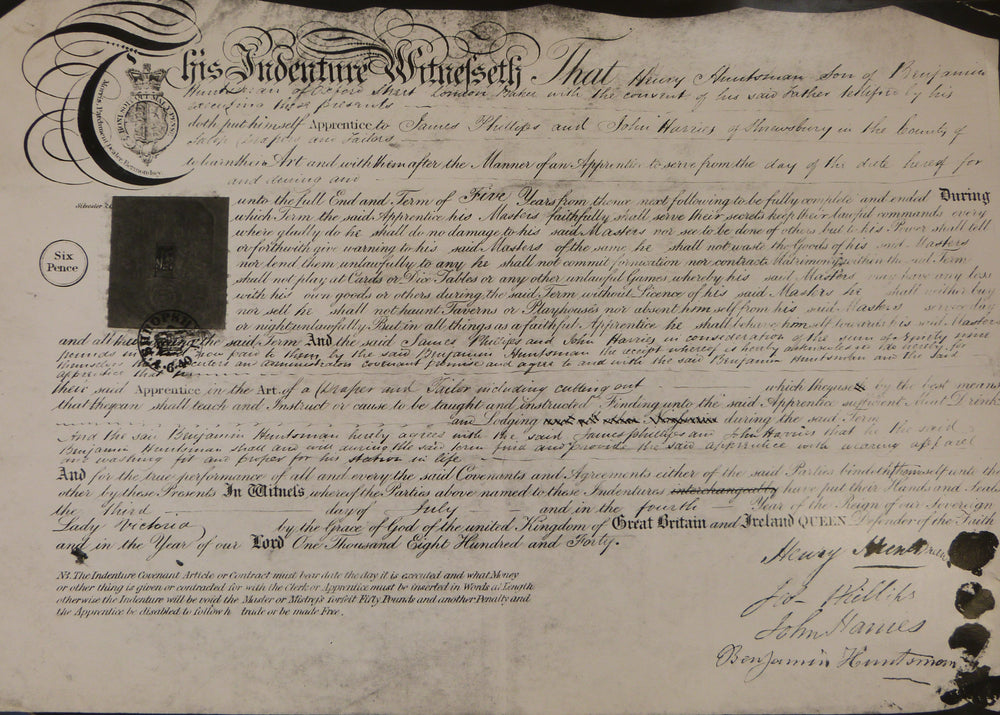 This Indenture Witnesseth That Henry Huntsman son of Benjamin
Huntsman of Oxford Street London Baker with the consent of his said Father testified by his
executing these presents
doth put himself Apprentice to James Phillips and John Harries of Shrewsbury in the County of
Salop Drapers and Tailors
to learn their Art and with them after the Manner of an Apprentice to serve from the day of the date hereof for
and during and
unto the full End and Term of Five Years from thence next following to be fully complete and ended During
Silvester &
which Term the said Apprentice his Masters faithfully shall serve their secrets keep their lawful commands every
where gladly do he shall do no damage to his said Masters nor see to be done of others but to his Power shall tell
or forthwith give warning to his said Masters of the same he shall not waste the Goods of his said Masters
Six
Pence
nor lend them unlawfully to any he shall not commit fornication nor contract Matrimony within the said Term
shall not play at Cards or Dice Tables or any other unlawful Games whereby his said Masters may have any loss
with his own goods or others during the said Term without Licence of his said Masters he shall neither buy
nor sell he shall not haunt Taverns or Playhouses nor absent himself from his said Masters service day
or night unlawfully But in all things as a faithful Apprentice he shall behave himself towards his said Masters
SHROPSH
and all during the said Term And the said James Phillips and John Harries in consideration of the sum of
pounds now paid to them by the said Benjamin Huntsman the receipt whereof is hereby
themselves administrators covenant promise and agree to and with the said Benjamin Huntsman and the said
apprentice that
their said Apprentice in the Art of a Draper and Tailor including cutting out which they use by the best means
that they can shall teach and Instruct or cause to be taught and instructed Finding unto the said Apprentice sufficient Meat Drink
and Lodging during the said Term
And the said Benjamin Huntsman hereby agrees with the said James Phillips and John Harries that he the said
Benjamin Huntsman shall and will during the said term find and provide the said apprentice with wearing apparel
and washing fit and proper for his station in life
And for the true performance of all and every the said Covenants and Agreements either of the said Parties bindeth himself unto the
other by these Presents In Witness whereof the Parties above named to these Indentures interchangeably have put their Hands and Seals
the third day of July and in the fourth Year of the Reign of our Sovereign
Lady Victoria by the Grace of God of the united Kingdom of Great Britain and Ireland QUEEN Defender of the Faith
and in the Year of our Lord One Thousand Eight Hundred and Forty.
NB. The Indenture Covenant Article or Contract must bear date the day it is executed and what Money
or other thing is given or contracted for with the Clerk or Apprentice must be inserted in Words at Length
otherwise the Indenture will be void the Master or Mistress forfeit Fifty Pounds and another Penalty and
the Apprentice be disabled to follow h trade or be made Free.
Henry Huntsman
Jas Phillips
John Harries
Benjamin Huntsman